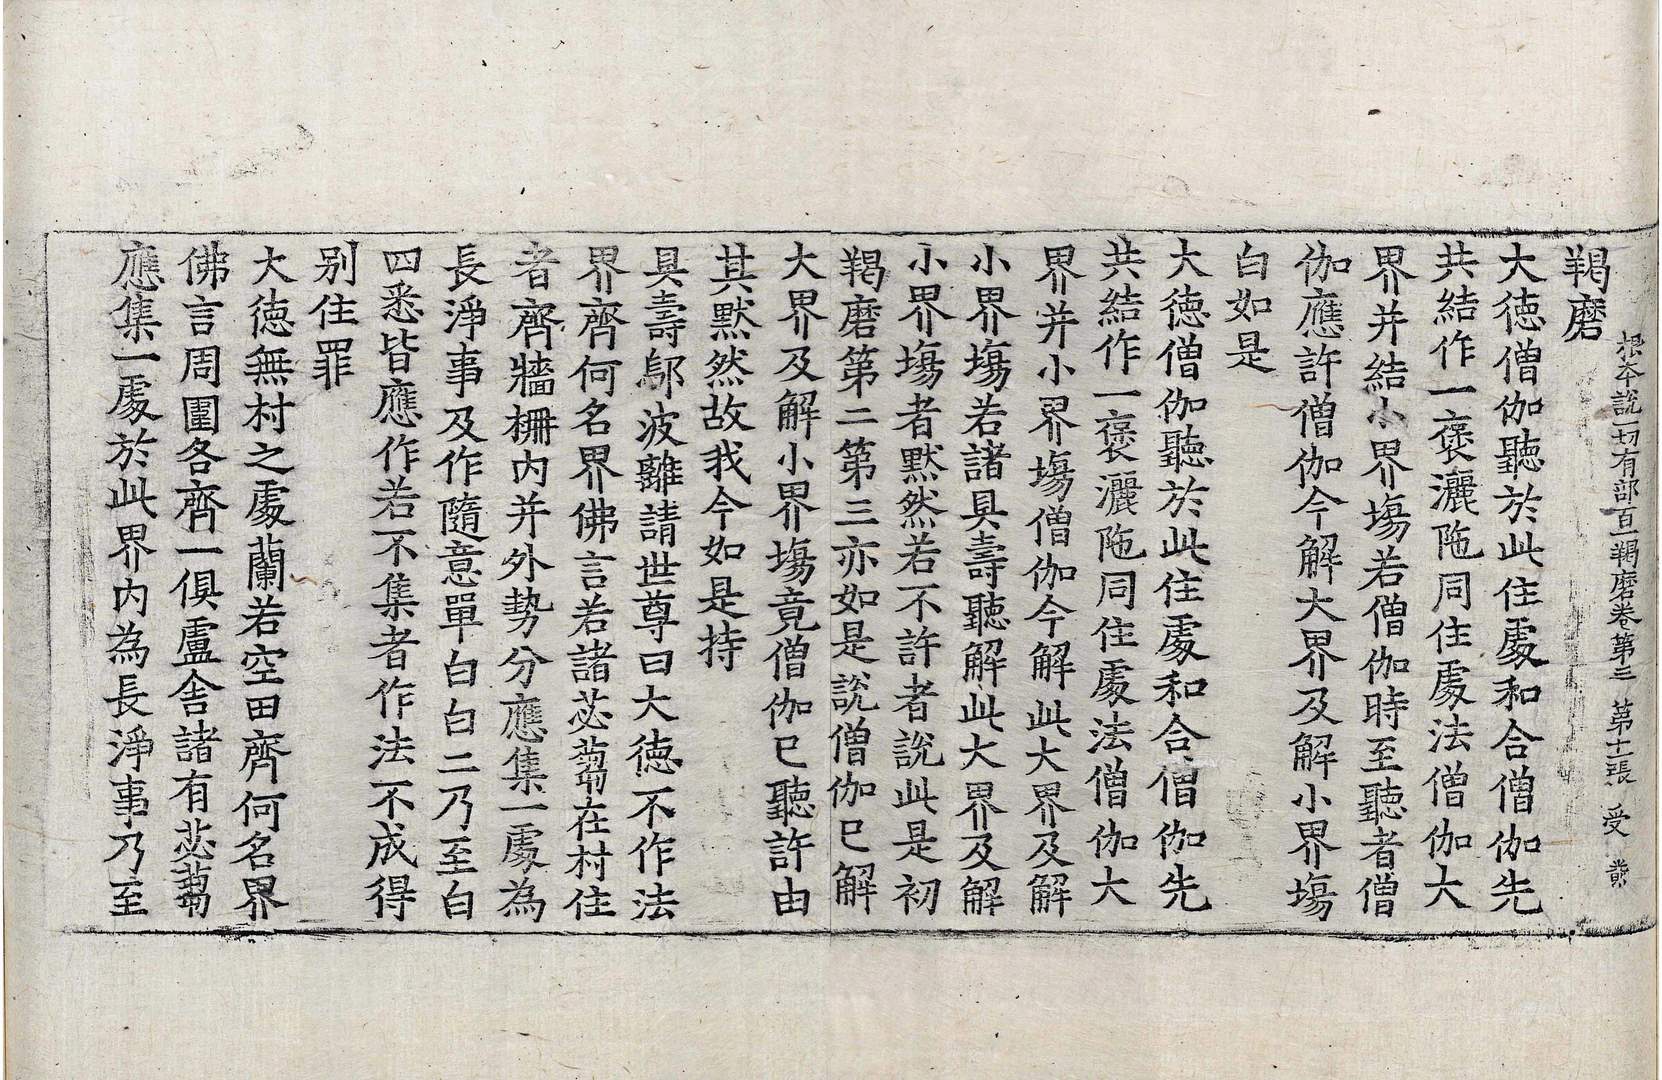 根本說一切有部百一羯磨卷第三 第十二張 受
羯磨
大德僧伽聽於此住處和合僧伽先
共結作一褒灑陁同住處法僧伽大
界并結小界塲若僧伽時至聽者僧
伽應許僧伽今解大界及解小界塲
白如是
大德僧伽聽於此住處和合僧伽先
共結作一褒灑陁同住處法僧伽大
界并小界塲僧伽今解此大界及解
小界塲若諸具壽聽解此大界及解
小界塲者默然若不許者說此是初
羯磨第二第三亦如是說僧伽已解
大界及解小界塲竟僧伽已聽許由
其默然故我今如是持
具壽鄔波離請世尊曰大德不作法
界齊何名界佛言若諸苾蒭在村住
者齊牆柵內并外勢分應集一處為
長淨事及作隨意單白白二乃至白
四悉皆應作若不集者作法不成得
別住罪
大德無村之處蘭若空田齊何名界
佛言周圍各齊一俱盧舍諸有苾蒭
應集一處於此界內為長淨事乃至